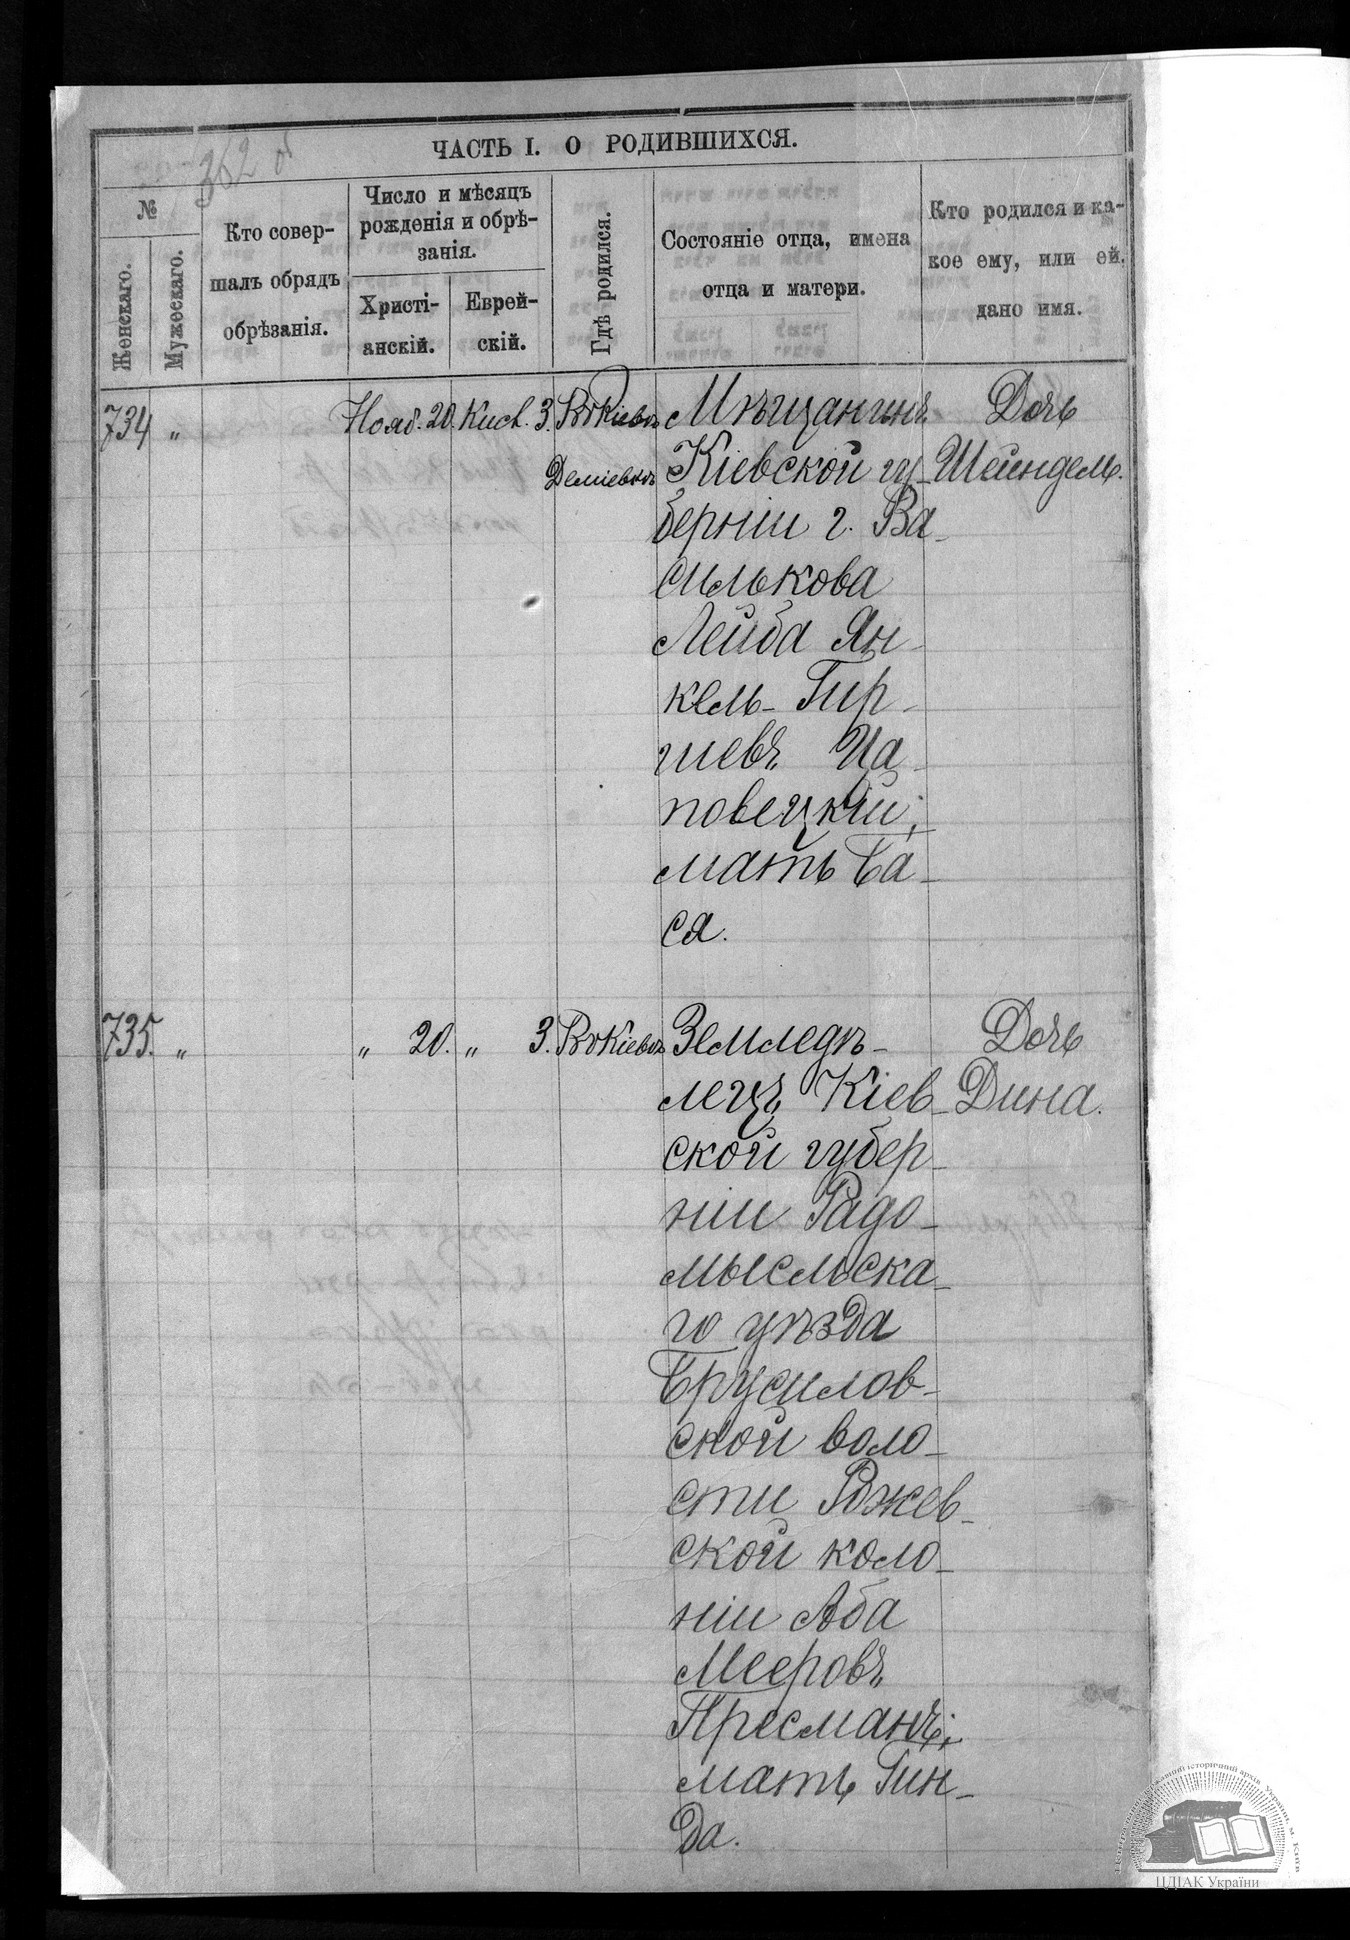 362 об
ЧАСТЬ I. О РОДИВШИХСЯ.
№
Женскаго.
Мужескаго.
Кто совер-
шалъ обрядъ
обрѣзанія.
Число и мѣсяцъ
рожденія и обрѣ-
занія.
Христі-
анскій.
Еврей-
скій.
Гдѣ родился.
Состояніе отца, имена
отца и матери.
Кто родился и ка-
кое ему, или ей,
дано имя.
734 „ Нояб. 20. Кисл. 3. Въ Кіевѣ Мѣщанинъ Дочь
Деміевкѣ Кіевской гу- Шейндель.
берніи г. Ва-
силькова
Лейба Ян-
кель-Гир-
шевъ Ца-
повецкій;
мать Ба-
ся.
735. „ „ 20. „ 3. Въ Кіевѣ Земледѣ- Дочь
лецъ Кіев- Дина.
ской губер-
ніи Радо-
мысльска-
го уѣзда
Брусилов-
ской воло-
сти Ржев-
ской коло-
ніи Аба
Мееровъ
Пресманъ;
мать Гин-
да.
ЦДІАК України